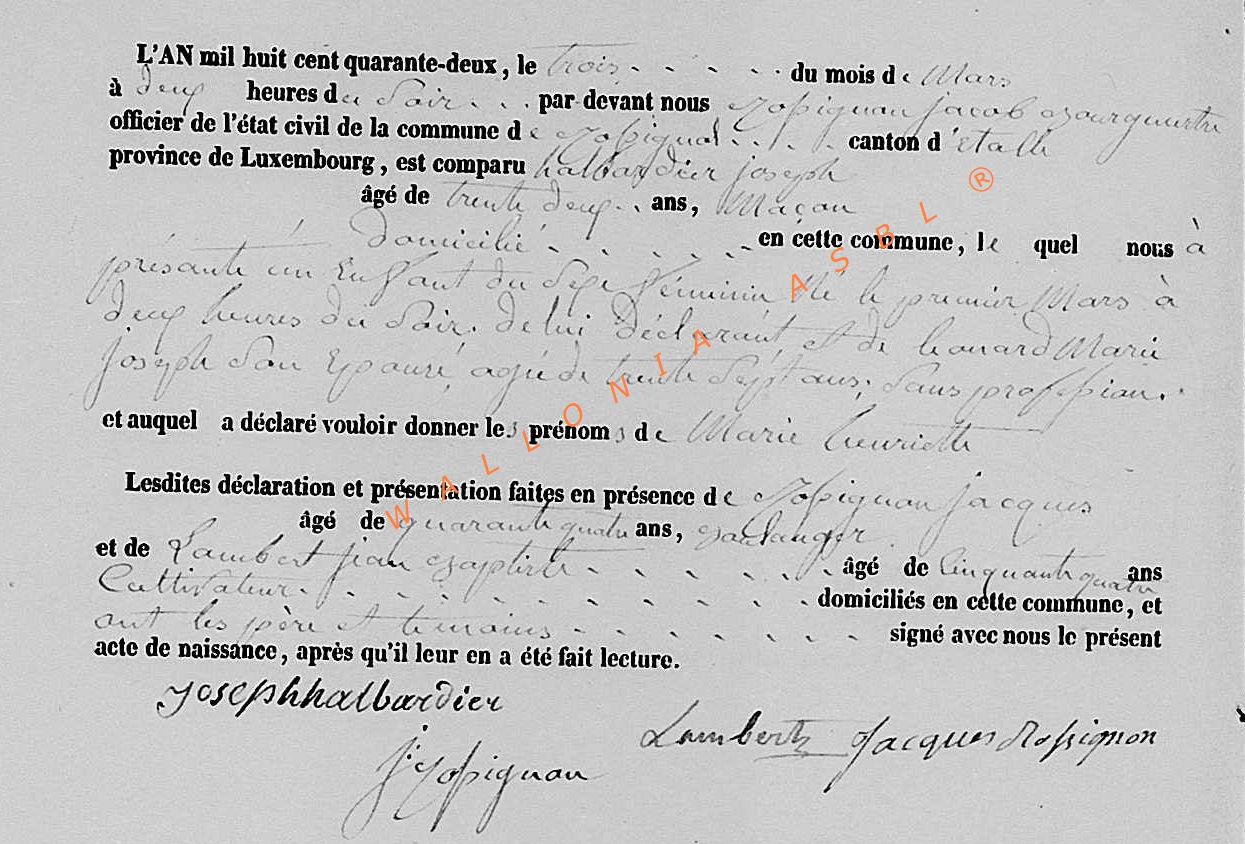 L'AN mil huit cent quarante-deux, le trois du mois de Mars
à deux heures du Soir par devant nous Rossignon jacob Bourguestre
officier de l'état civil de la commune de Rossignol canton d'Etalle
province de Luxembourg, est comparu halbardier joseph
âgé de trente deux ans, Maçon
domicilié en cette commune, le quel nous à
présanté un Enfant du Sexe féminin né le premier Mars à
deux heures du Soir. de lui déclarant et de leonard Marie
joseph Son Epouse agée de trente Sept ans, Sans profession.
et auquel a déclaré vouloir donner les prénoms de Marie henriette
Lesdites déclaration et présentation faites en présence de Rossignon jacques
âgé de quarante quatre ans, Boulanger
et de Lambert jean Baptiste âgé de Cinquante quatre ans
Cultivateur domiciliés en cette commune, et
ont les père et temoins signé avec nous le présent
acte de naissance, après qu'il leur en a été fait lecture.
joseph halbardier
Lambert Jacques Rossignon
j Rossignon
WALLONIA ASBL ®